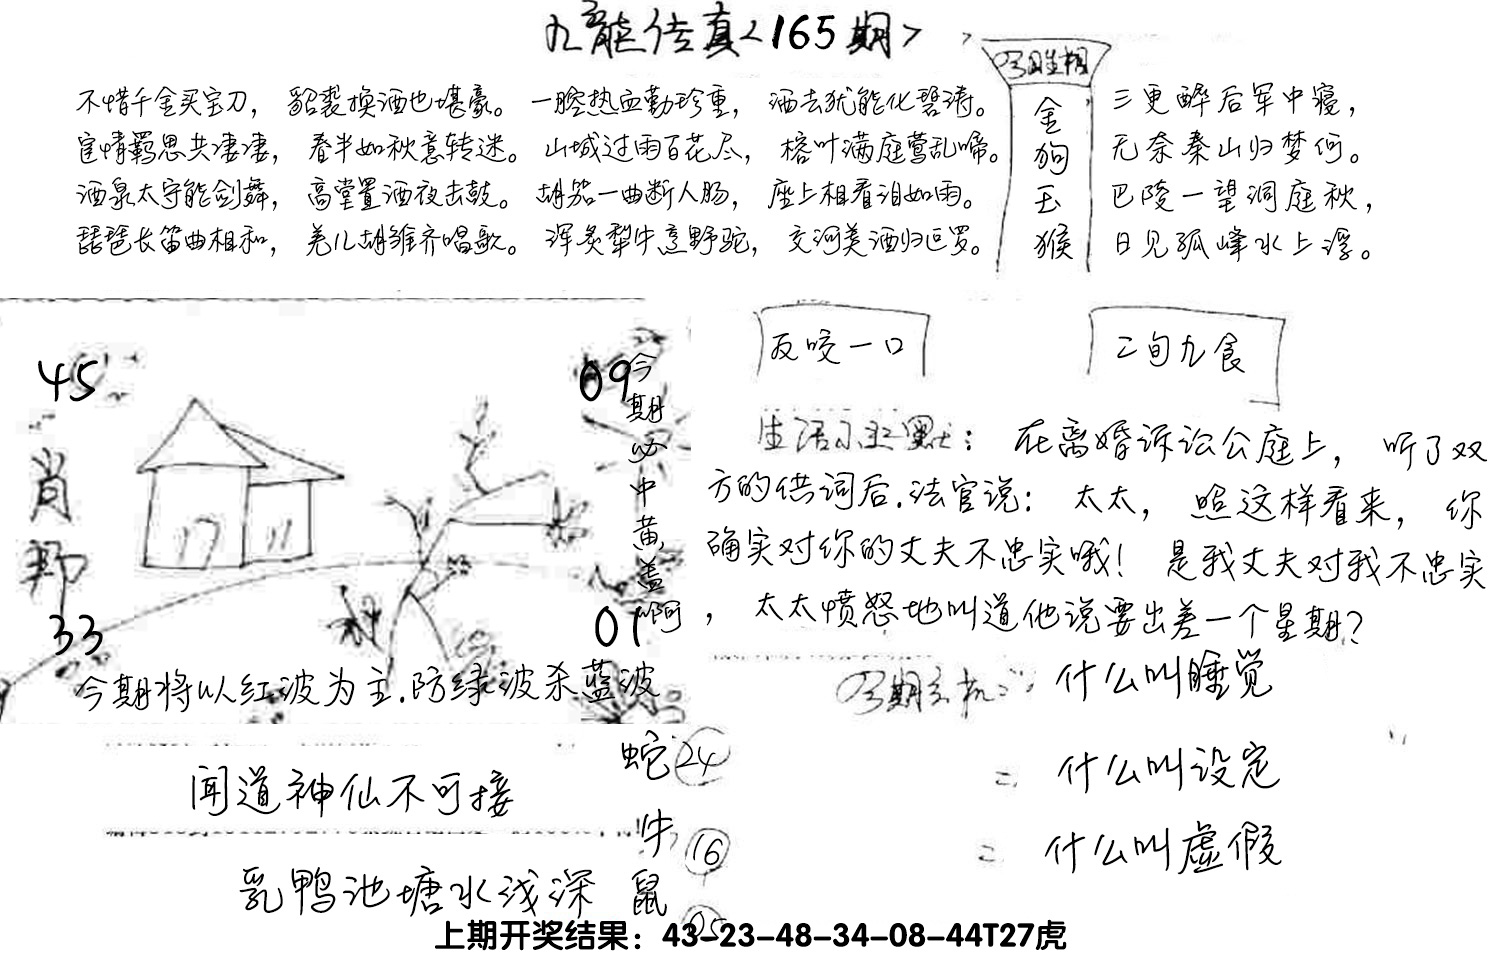 九龙传真<165期>
不惜千金买宝刀，貂裘换酒也堪豪。一腔热血勤珍重，洒去犹能化碧涛。
宦情羁思共凄凄，春半如秋意转迷。山城过雨百花尽，榕叶满庭莺乱啼。
酒泉太守能剑舞，高堂置酒夜击鼓。胡笳一曲断人肠，座上相看泪如雨。
琵琶长笛曲相和，羌儿胡雏齐唱歌。浑炙犁牛烹野驼，交河美酒归叵罗。
金
狗
玉
猴
三更醉后军中寝，
无奈秦山归梦何。
巴陵一望洞庭秋，
日见孤峰水上浮。
45
09
肖
33
01
今期必中黄盖啊
今期将以红波为主.防绿波杀蓝波
反咬一口
二旬九食
生活小幽默：在离婚诉讼公庭上，听了双
方的供词后.法官说：太太，照这样看来，你
确实对你的丈夫不忠实哦！是我丈夫对我不忠实
，太太愤怒地叫道他说要出差一个星期？
什么叫睡觉
什么叫设定
什么叫虚假
闻道神仙不可接
乳鸭池塘水浅深
蛇24
牛16
鼠05
上期开奖结果：43-23-48-34-08-44T27虎